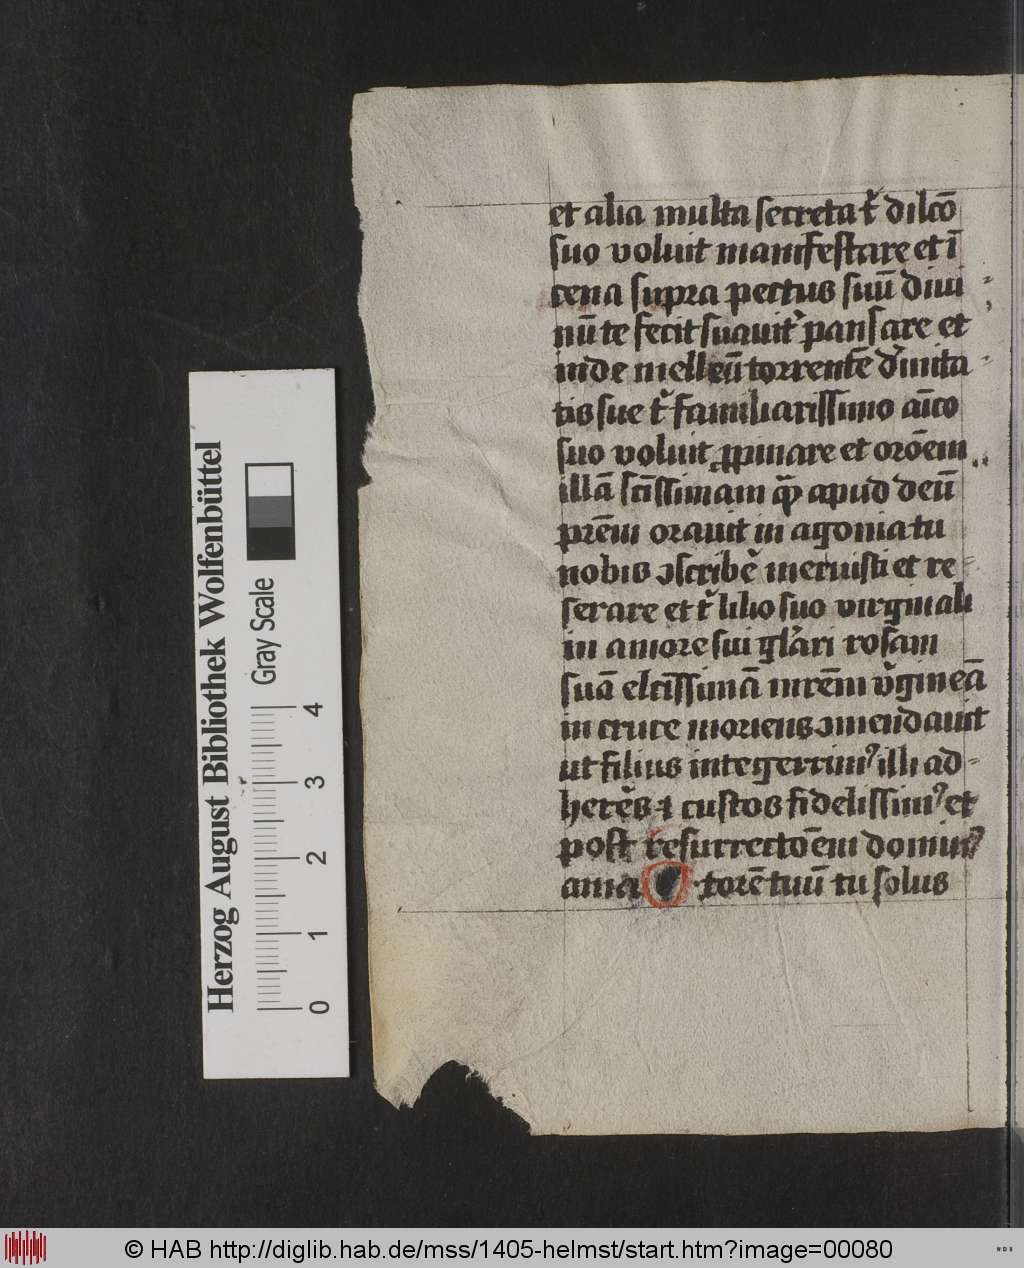 et alia multa secreta t᷑ dilcō
suo voluit manifestare et ī
cena supra pectus suū diui
nū te fecit suauit᷑ pansare et
inde melleū torrentē diuinita
tis sue t᷑ familiarissimo aīco
suo voluit ꝓpinare et orōem
illā scīssimam q̄ apud deū
prēm orauit in agonia tu
nobis ɔscribē meruisti et re
serare et t᷑ lilio suo virginali
in amore sui gl'ari rosam
suā elcīssimā mrēm v᷑gineā
in cruce moriens ɔmendauit
ut filius integerrim᾽ illi ad
herēs ⁊ custos fidelissim᾽ et
post resurrectōem domin᾽
ama torē tuū tu solus
Herzog August Bibliothek Wolfenbüttel
Gray Scale
0 1 2 3 4
© HAB http://diglib.hab.de/mss/1405-helmst/start.htm?image=00080